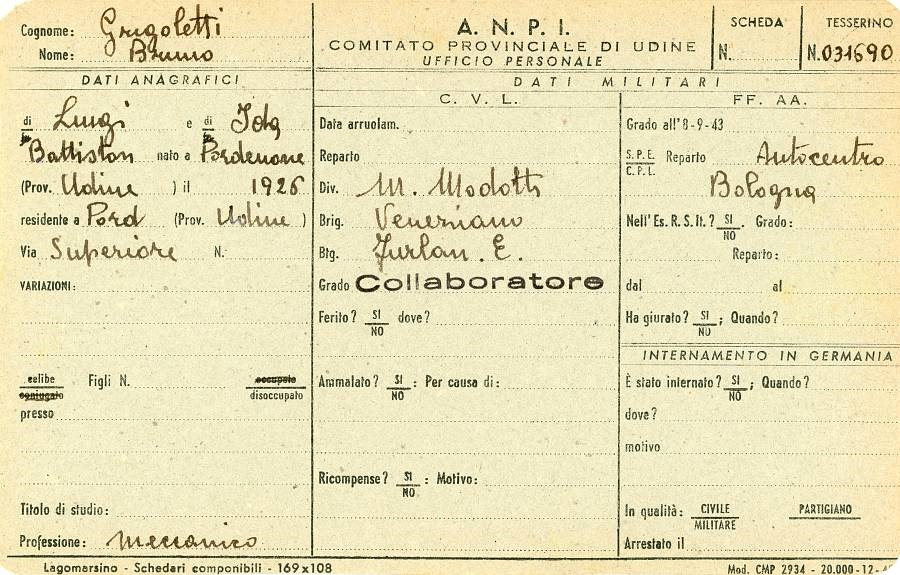 Cognome: Grigoletti
Nome: Bruno
A. N. P. I.
COMITATO PROVINCIALE DI UDINE
UFFICIO PERSONALE
SCHEDA
N.
TESSERINO
N. 031690
DATI ANAGRAFICI
di Luigi e di Ida
Battiston nato a Pordenone
(Prov. Udine ) il 1926
residente a Pord (Prov. Udine )
Via Superiore N.
VARIAZIONI:
celibe
coniugato
Figli N.
occupato
disoccupato
presso
Titolo di studio:
Professione: meccanico
DATI MILITARI
C. V. L.
Data arruolam.
Reparto
Div. M. Modotti
Brig. Venezniano
Btg. Furlan. E.
Grado Collaboratore
Ferito? SI NO dove?
Ammalato? SI NO : Per causa di:
Ricompense? SI NO : Motivo:
FF. AA.
Grado all'8-9-43
S.P.E.
C.P.L.
Reparto Autocentro
Bologna
Nell'Es. R. S. It.? SI NO . Grado:
Reparto:
dal al
Ha giurato? SI NO ; Quando?
INTERNAMENTO IN GERMANIA
È stato internato? SI NO ; Quando?
dove?
motivo
In qualità: CIVILE MILITARE PARTIGIANO
Arrestato il
Lagomarsino - Schedari componibili - 169x108
Mod. CMP 2934 - 20.000-12-4